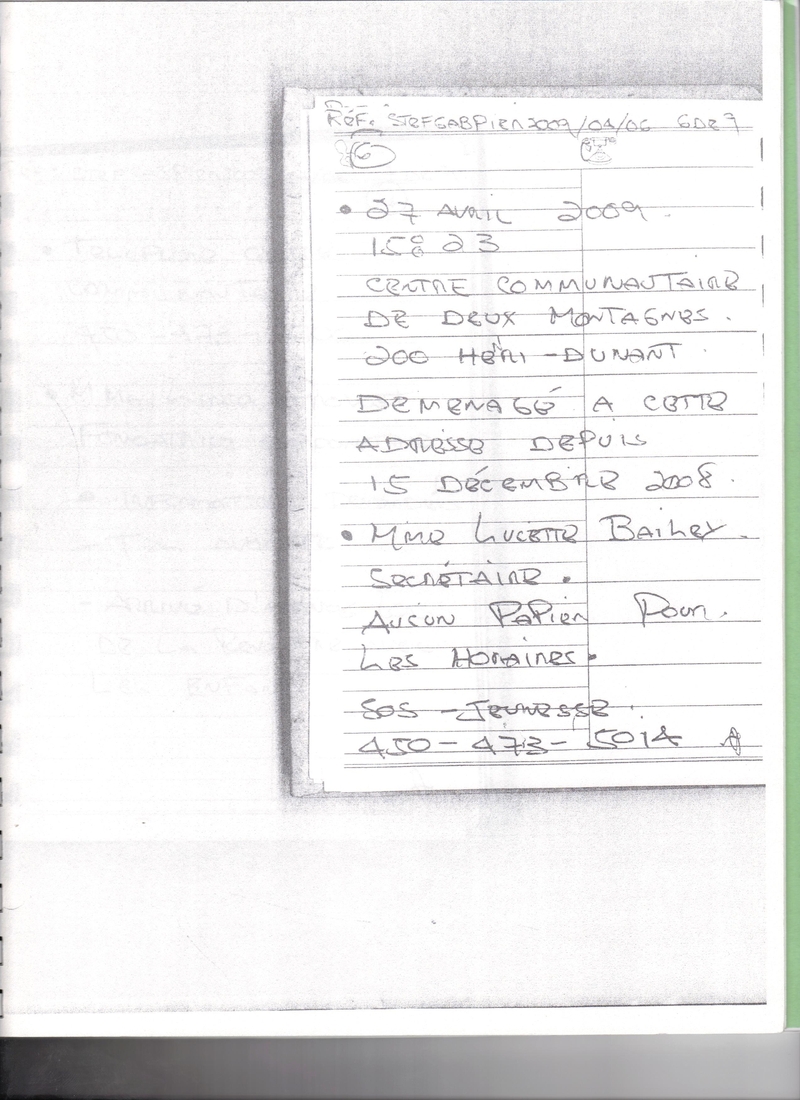 RÉF. STEFGABPIER2009/04/06 6 DE 7
6
• 27 AVRIL 2009.
15:23
CENTRE COMMUNAUTAIRE
DE DEUX MONTAGNES.
200 HENRI-DUNANT.
DEMENAGÉ A CETTE
ADRESSE DEPUIS
15 DÉCEMBRE 2008.
• Mme LUCETTE BAILEY.
SECRÉTAIRE.
AUCUN PAPIER POUR.
LES HORAIRES.
SOS - JEUNESSE.
450-473-5014